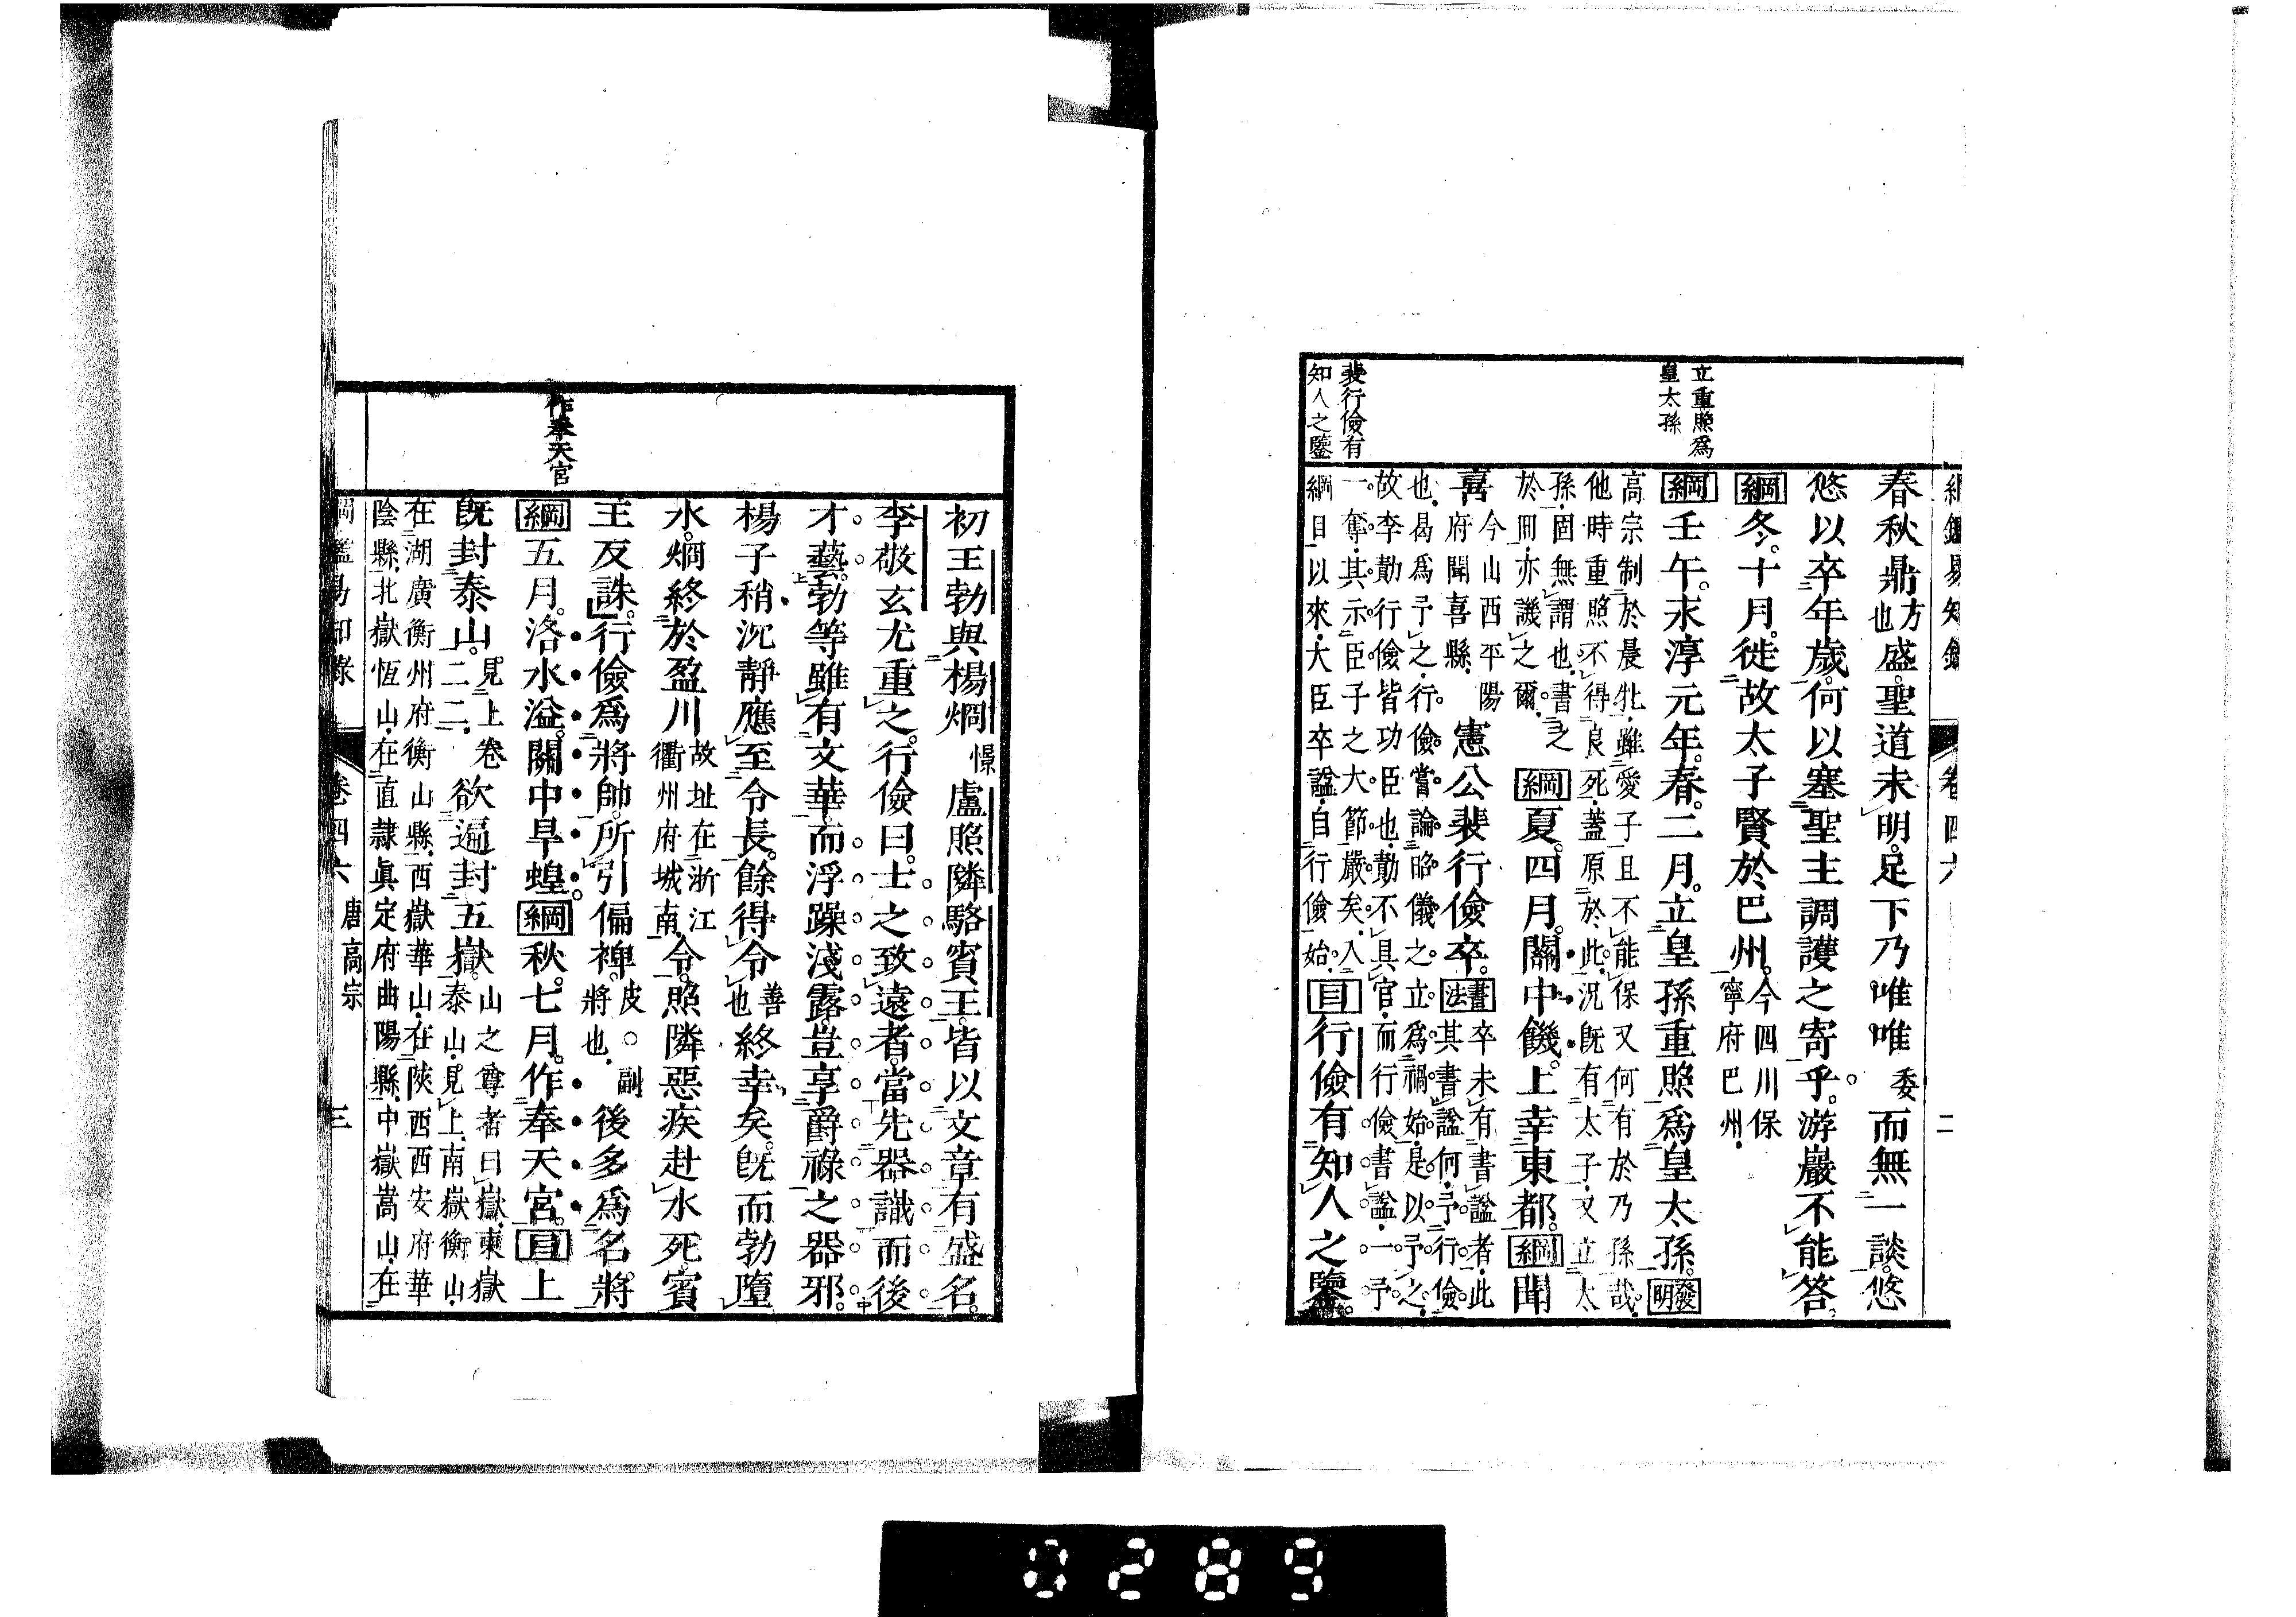 綱鑑易知錄 卷四六 二
立重照為
皇太孫
裴行儉有
知人之鑒
春秋鼎方也盛。聖道未明。足下乃唯唯委而無一談。悠
悠以卒年歲。何以塞聖主調護之寄乎。游巖不能答。
綱冬。十月。徙故太子賢於巴州。今四川保寧府巴州。
綱壬午。永淳元年。春。二月。立皇孫重照爲皇太孫。發明
高宗制於晨牝。雖愛子且不能保。又何有於乃孫哉。
他時重照不得良死。蓋原於此。況既有太子。又立太
孫。固無謂也。書之
於冊。亦譏之爾。綱夏。四月。關中饑。上幸東都。綱聞
喜今山西平陽府聞喜縣。憲公裴行儉卒。書法卒未有書諡者。此其書諡何。予行儉
也。曷爲予之。行儉嘗論昭儀之立爲禍始。是以予之。
故李勣行儉皆功臣也。勣不具官。而行儉書諡。一予
一奪。其示臣子之大節嚴矣。入
綱目以來。大臣卒諡。自行儉始。目行儉有知人之鑒。
作奉天宮
初王勃與楊烱憬盧照隣駱賓王。皆以文章有盛名。
李敬玄尤重之。行儉曰。士之致遠者。當先器識而後
才藝。勃等雖有文華。而浮躁淺露。豈享爵祿之器邪。
楊子稍沉靜。應至令長。餘得令善也終幸矣。既而勃墮
水。烱終於盈川故址在浙江衢州府城南。令。照隣惡疾赴水死。賓
王反誅。行儉爲將帥。所引偏裨皮。○副將也。後多爲名將。
綱五月。洛水溢。關中旱蝗。綱秋。七月。作奉天宮。目上
既封泰山。見上卷二二。欲遍封五嶽。山之尊者曰嶽。東嶽泰山。見上。南嶽衡山。
在湖廣衡州府衡山縣。西嶽華山。在陝西西安府華
陰縣。北嶽恆山。在直隸眞定府曲陽縣。中嶽嵩山。在
綱鑑易知錄 卷四六 唐高宗 三
0289